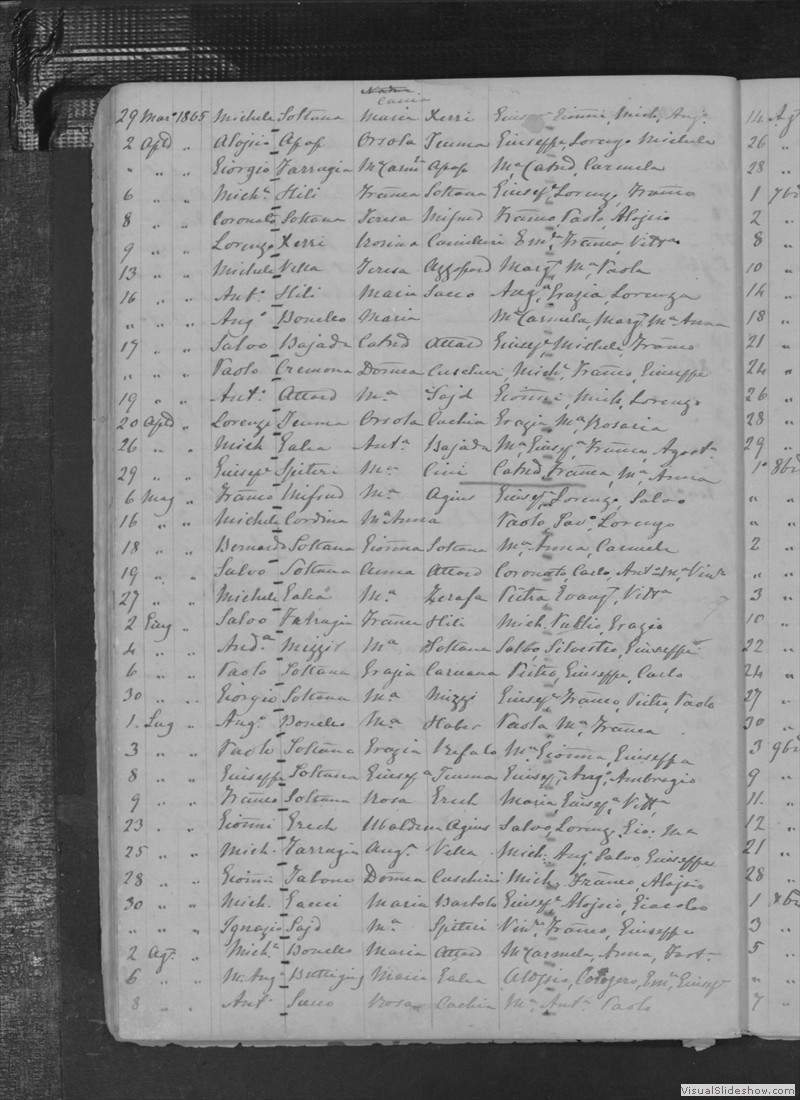 Cassia
29 Mar. 1865 Michele Soltana Maria Xerri Giusepe Gionni, Mich, Ang. 14 Agt
2 Aple " Aloisio Apap Orsola Teuma Giuseppe, Lorenzo Michele 26 "
" " " Giorgio Farrugia Apap Ma Catnd, Carmela 28 "
6 " " Michl Hili Franca Soltana Giusepe, Lorenzo, Franco 1 7bre
8 " " Coronato Soltana Teresa Mifsud Franco, Paolo, Aloisio 2 "
9 " " Lorenzo Xerri Rosina Camilleri Emle, Franco, Vitta 8 "
13 " " Michele Vella Teresa Azzopard Margt, Ma Paola 10 "
16 " " Anto Hili Maria Sacco Anga, Grazia, Lorenza 14 "
" " " Ango Bonello Maria Ma Carmela, Margt, Ma Anna 18 "
17 " " Salvo Bajada Catnd Attard Giusepe, Michele, Franco 21 "
" " " Paolo Cremona Domca Cuschieri Michl, Franco, Giuseppe 24 "
19 " " Anto Attard Ma Sajd Gionni, Mich, Lorenzo 26 "
20 Aple " Lorenzo Teuma Orsola Cachia Grazia Ma Rosaria 28 "
26 " " Mich Galea Anta Bajada Ma Giusepa, Franca Agosta 29 "
29 " " Giusepe Spiteri Ma Cini Catnd, Franca, Ma Anna 1 8bre
6 Mag " Franco Mifsud Ma Agius Giusepe, Lorenzo, Salvo " "
16 " " Michele Cordina Ma Anna Paolo, Savo, Lorenzo " "
18 " " Bernardo Soltana Gionna Soltana Ma Anna, Carmela 2 "
19 " " Salvo Soltana Anna Attard Coronato, Carlo, Anto " "
27 " " Michele Galea Ma Zerafa Pietra Evangta, Vitta 3 "
2 Giug " Salvo Farrugia Franca Hili Mich, Publio, Grazio 10 "
4 " " Anda Mizzi Ma Soltana Salvo, Silvestro, Giuseppe 22 "
6 " " Paolo Soltana Grazia Caruana Pietro, Giuseppe, Carlo 24 "
30 " " Giorgio Soltana Ma Mizzi Giusepe, Franco, Pietro, Paolo 27 "
1. Lug " Ango Bonello Ma Haber Paola Ma, Franca 30 "
3 " " Paolo Soltana Grazia Refalo Ma Gionna, Giuseppa 3 9bre
8 " " Giuseppe Soltana Giusepa Teuma Giusepe, Ango, Ambrogio 9 "
9 " " Franco Soltana Rosa Grech Maria, Giusepa, Vitta 11. "
23 " " Gionni Grech Ubaldesa Agius Salvo, Lorenzo, Gio. Ma 12 "
25 " " Mich. Farrugia Anga Vella Mich. Ango Salvo Giuseppe 21 "
28 " " Gionni Tabone Domca Cuschieri Mich, Franco, Aloisio 28 "
30 " " Mich. Gauci Maria Bartolo Giusepe, Aloisio, Giacobo 1 Xbre
" " " Ignazio Sajd Ma Spiteri Vinzo, Franco, Giuseppe 3 "
2 Agt. " Michl Bonello Maria Attard Ma Carmela, Anna, Forta 5 "
6 " " M. Ang. Buttigieg Maria Galea Aloisio, Calogero, Eml, Giusepe " "
8 " " Anto Sacco Rosa Cachia Ma Anta Paolo 7 "
VisualSlideshow.com